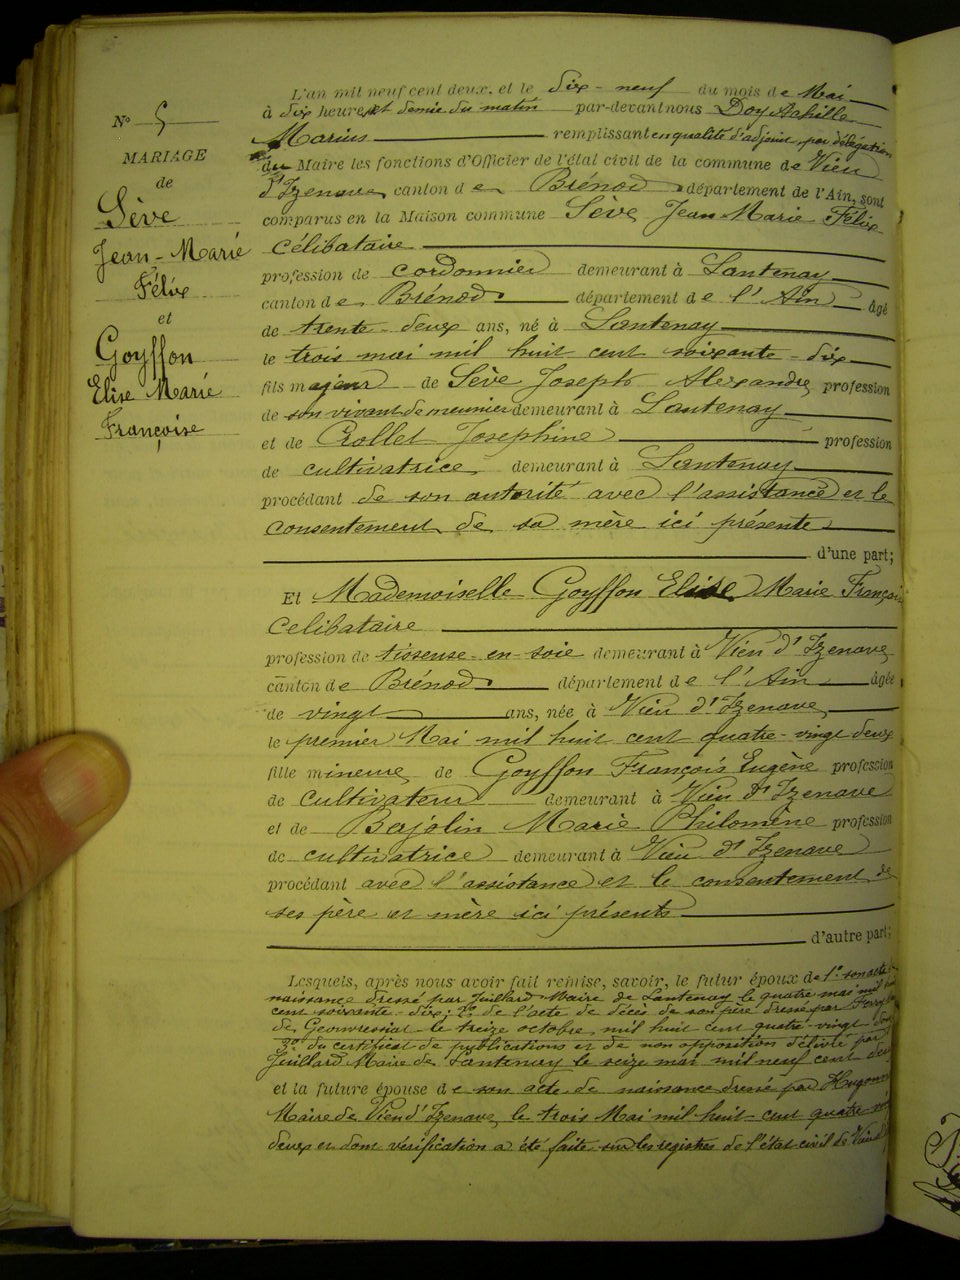 N° 5
MARIAGE
de
Sève
Jean-Marie
Félix
et
Goyffon
Elise Marie
Françoise
L'an mil neuf cent deux, et le dix-neuf du mois de Mai
à dix heures et demie du matin par-devant nous Doy Achille
Marius remplissant en qualité d'adjoint, par délégation
du Maire les fonctions d'Officier de l'état civil de la commune de Vieu
d'Izenave, canton de Brénod département de l'Ain, sont
comparus en la Maison commune Sève Jean Marie Félix
Célibataire
profession de cordonnier demeurant à Lantenay
canton de Brénod département de l'Ain âgé
de trente-deux ans, né à Lantenay
le trois mai mil huit cent soixante-dix
fils majeur de Sève Joseph Alexandre profession
de son vivant de meunier demeurant à Lantenay
et de Crollet Josephine profession
de cultivatrice demeurant à Lantenay
procédant de son autorité avec l'assistance et le
consentement de sa mère ici présente
d'une part;
Et Mademoiselle Goyffon Elise Marie Françoi
Celibataire
profession de tisseuse-en-soie demeurant à Vieu d'Izenave
canton de Brénod département de l'Ain âgée
de vingt ans, née à Vieu d'Izenave
le premier Mai mil huit cent quatre-vingt deux
fille mineure de Goyffon François Eugène profession
de cultivateur demeurant à Vieu d'Izenave
et de Bajolin Marie Philomène profession
de cultivatrice demeurant à Vieu d'Izenave
procédant avec l'assistance et le consentement de
ses père et mère ici présents
d'autre part;
Lesquels, après nous avoir fait remise, savoir, le futur époux de 1° son acte
naissance dressé par Juillard Maire de Lantenay le quatre mai mil huit
cent soixante-dix; 2° de l'acte de décès de son père dressé par
de Geovressiat le treize octobre mil huit cent quatre-vingt
3° du certificat de publications et de non opposition délivré par
Juillard Maire de Lantenay le seize mai mil neuf cent deux
et la future épouse de son acte de naissance dressé par
Maire de Vieu d'Izenave le trois Mai mil huit-cent quatre
deux et dont vérification a été faite sur les registres de l'état civil de Vieu d'I